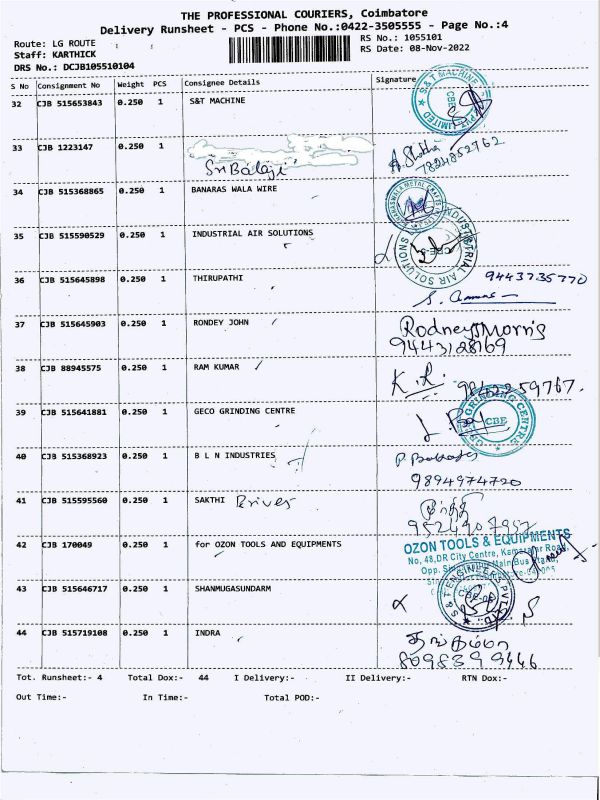 THE PROFESSIONAL COURIERS, Coimbatore
Delivery Runsheet - PCS - Phone No.:0422-3505555 - Page No.:4
Route: LG ROUTE
RS No.: 1055101
Staff: KARTHICK
RS Date: 08-Nov-2022
DRS No.: DCJB105510104
S No Consignment No Weight PCS Consignee Details Signature
32 CJB 515653843 0.250 1 S&T MACHINE
S&T MACHINERY PVT LIMITED CBE
33 CJB 1223147 0.250 1
Sri Balaji
7824852762
34 CJB 515368865 0.250 1 BANARAS WALA WIRE
35 CJB 515590529 0.250 1 INDUSTRIAL AIR SOLUTIONS
INDUSTRIAL AIR SOLUTIONS
36 CJB 515645898 0.250 1 THIRUPATHI
9443735770
37 CJB 515645903 0.250 1 RONDEY JOHN
Rodney J Morris
9443128169
38 CJB 88945575 0.250 1 RAM KUMAR
K. R.
39 CJB 515641881 0.250 1 GECO GRINDING CENTRE
GRINDING CENTRE CBE
40 CJB 515368923 0.250 1 B L N INDUSTRIES
9894974720
41 CJB 515595560 0.250 1 SAKTHI Driver
9524907957
42 CJB 170049 0.250 1 for OZON TOOLS AND EQUIPMENTS
OZON TOOLS & EQUIPMENTS
No, 48, DR City Centre, Kamarajar Road,
43 CJB 515646717 0.250 1 SHANMUGASUNDARM
S & T ENGINEERS PVT. LTD.
44 CJB 515719108 0.250 1 INDRA
8098399446
Tot. Runsheet:- 4 Total Dox:- 44 I Delivery:- II Delivery:- RTN Dox:-
Out Time:- In Time:- Total POD:-